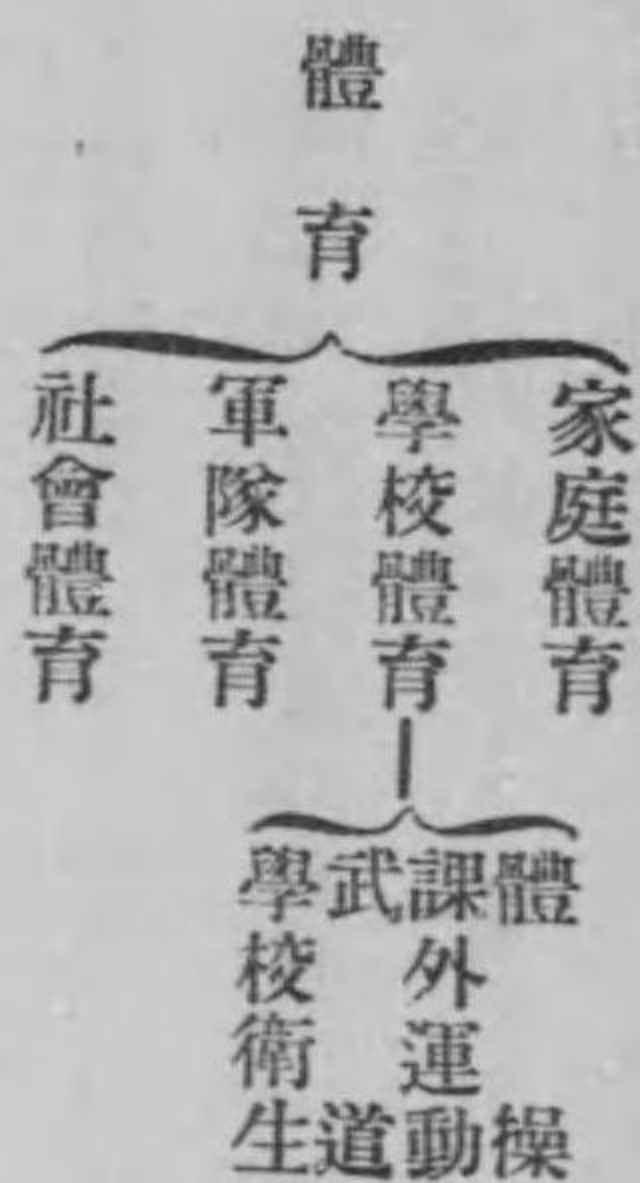 體育
家庭體育
學校體育
軍隊體育
社會體育
體操
課外運動
武道
學校衛生